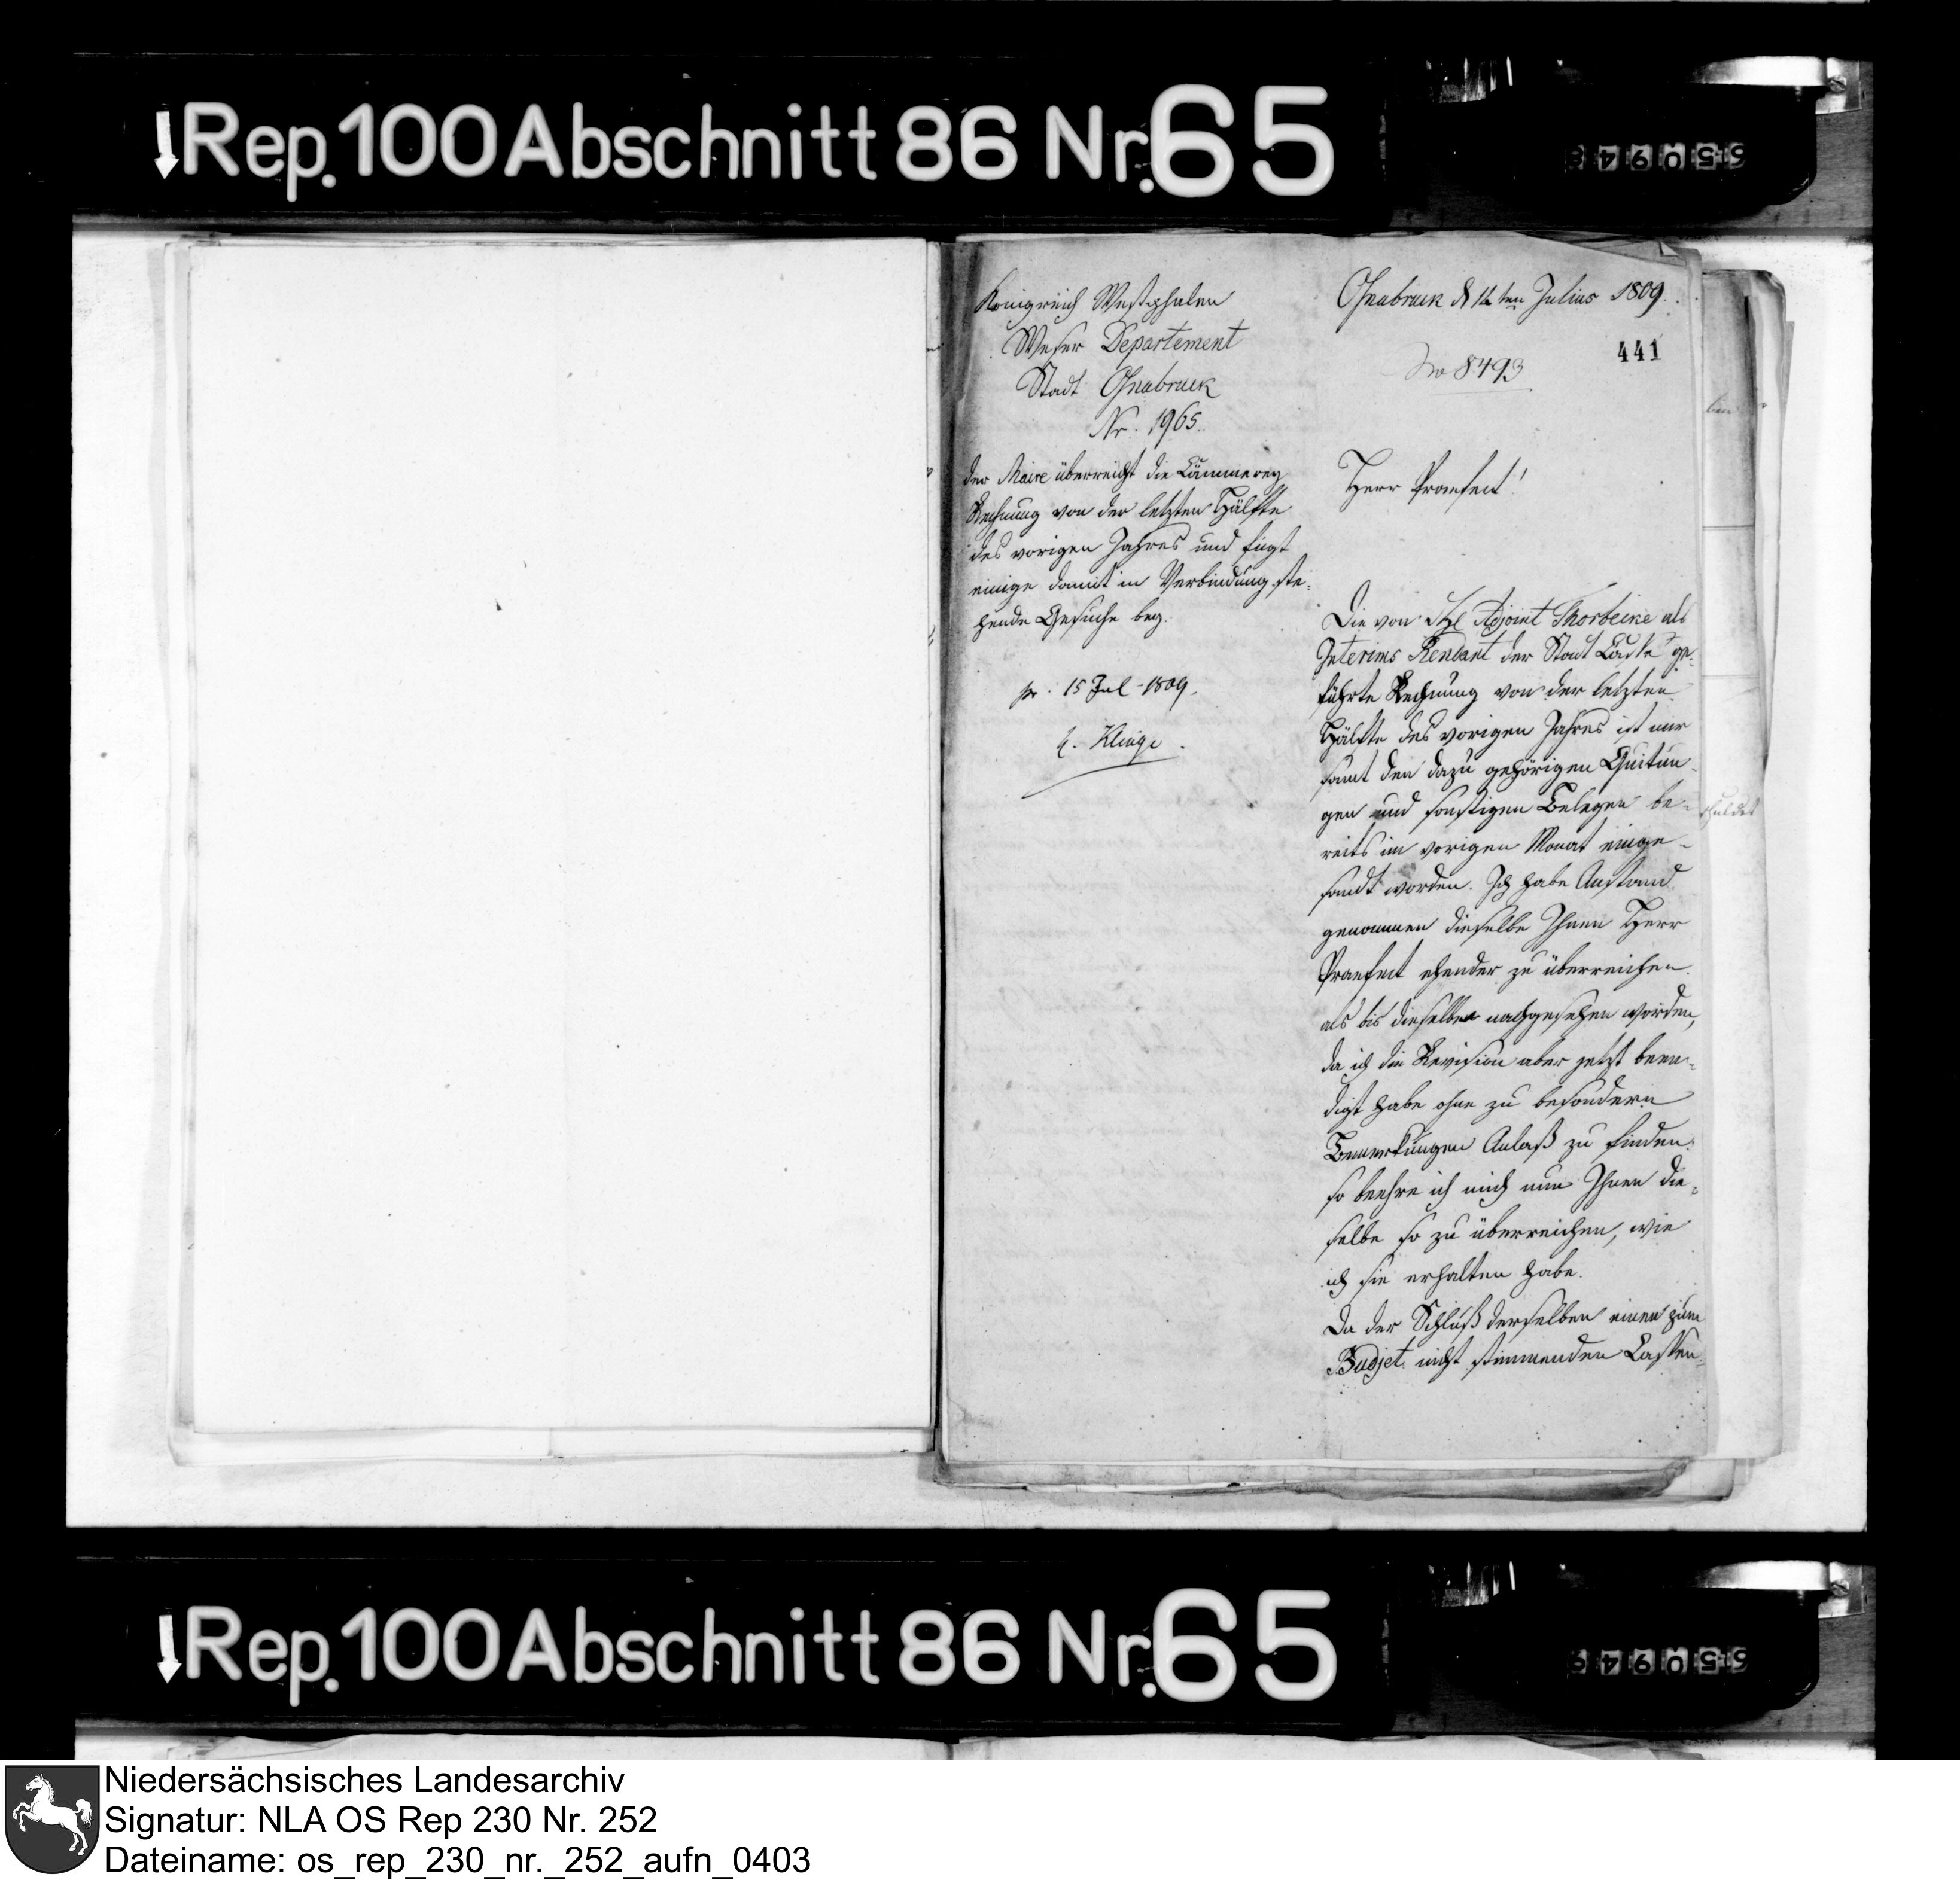 Rep. 100 Abschnitt 86 Nr. 65
Königreich Westphalen
Weser Departement
Stadt Osnabruck
Nr. 1965.
der Maire überreicht die Cämmerey
Rechnung von der letzten Hälfte
des vorigen Jahres und fügt
einige damit in Verbindung ste-
hende Gesuche bey.
pr. 15 Jul 1809.
Klinge.
Osnabruck d 14ten Julius 1809.
441
No 8493
Herr Praefect!
Die von Adjoint Thorbecke als
Interims Rendant der Stadt Casse ge-
führte Rechnung von der letzten
Hälfte des vorigen Jahres ist mir
samt den dazu gehörigen Quitun-
gen und sonstigen Belegen be-
reits im vorigen Monat einge-
sandt worden. Ich habe Anstand
genommen dieselbe Ihnen Herr
Praefect ehender zu überreichen
als bis dieselbe nachgesehen worden,
da ich die Revision aber jetzt been-
digt habe ohne zu besondern
Bemerkungen Anlaß zu finden
so beehre ich mich nun Ihnen die-
selbe so zu überreichen, wie
ich sie erhalten habe.
Da der Schluß derselben einen zum
Budjet nicht stimmenden Cassen-
Rep. 100 Abschnitt 86 Nr. 65
Niedersächsisches Landesarchiv
Signatur: NLA OS Rep 230 Nr. 252
Dateiname: os_rep_230_nr._252_aufn_0403